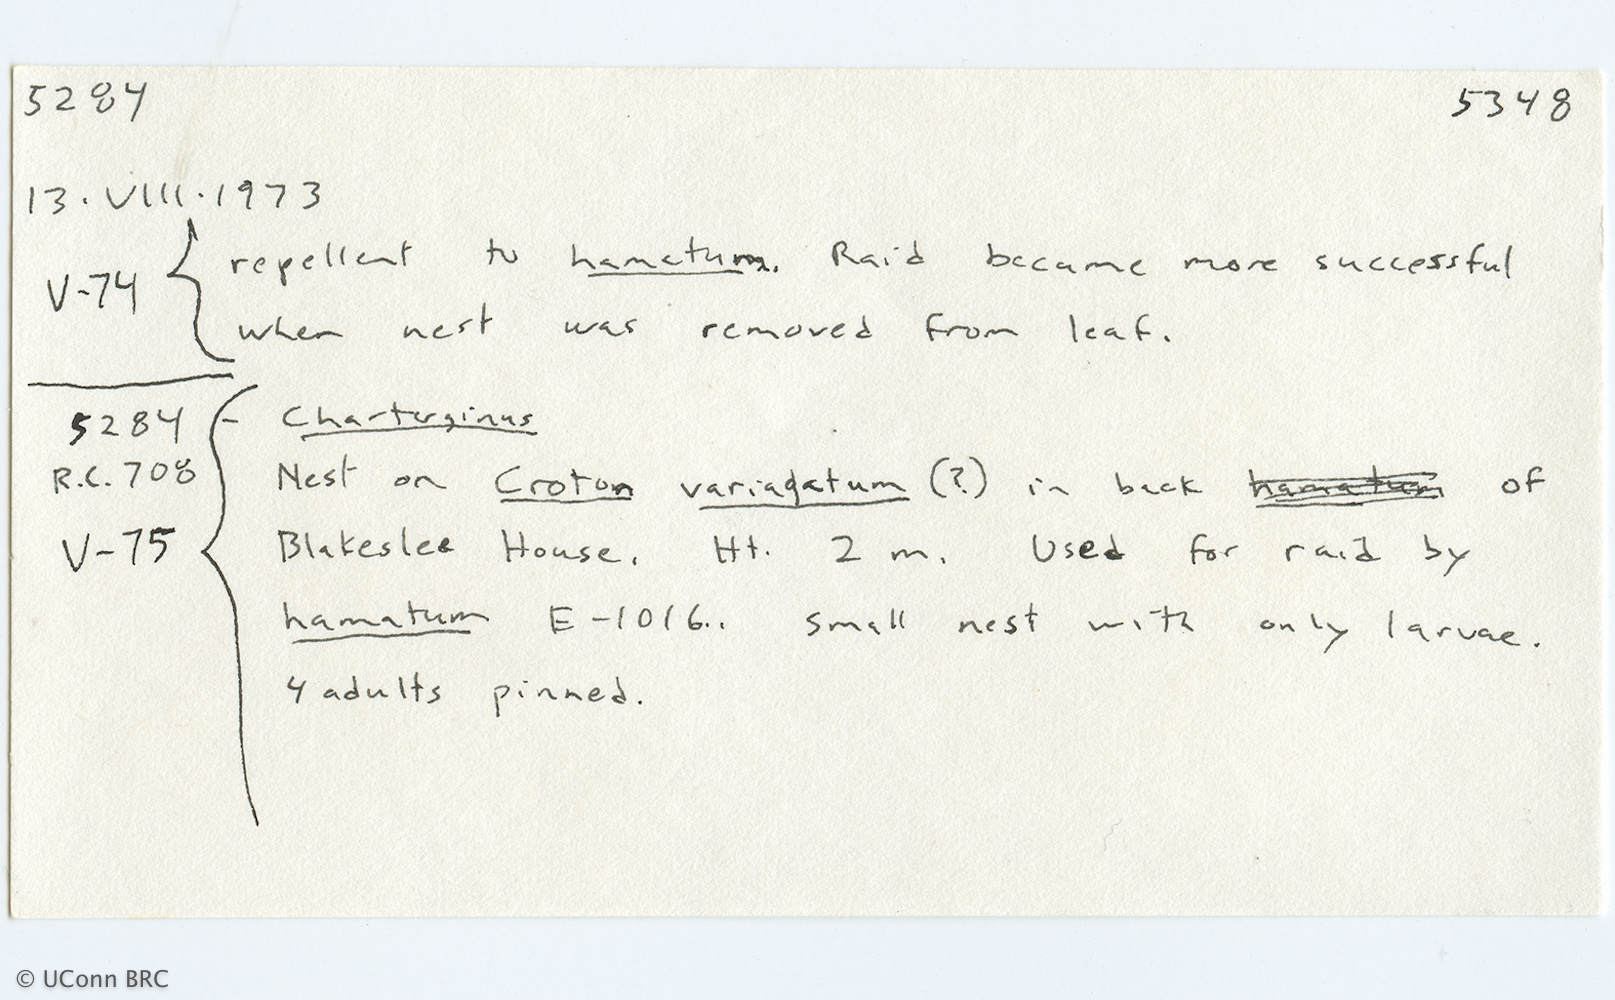 5284 5348
13.VIII.1973
V-74 repellent to hamatum. Raid became more successful
when nest was removed from leaf.
5284 - Charterginus
R.C. 708 Nest on Croton variagatum (?) in back hamatum of
V-75 Blakeslee House. Ht. 2 m. Used for raid by
hamatum E-1016.. Small nest with only larvae.
4 adults pinned.
© UConn BRC